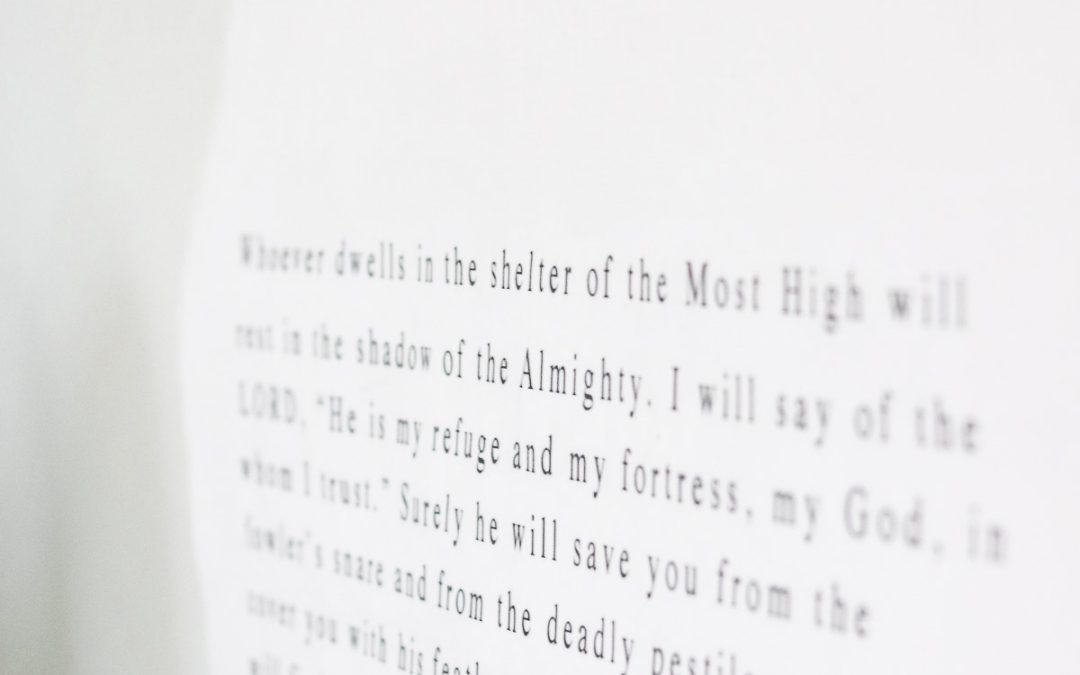 Whoever dwells in the shelter of the Most High will
rest in the shadow of the Almighty. I will say of the
LORD, “He is my refuge and my fortress, my God, in
whom I trust.” Surely he will save you from the
fowler’s snare and from the deadly
cover you with his
will